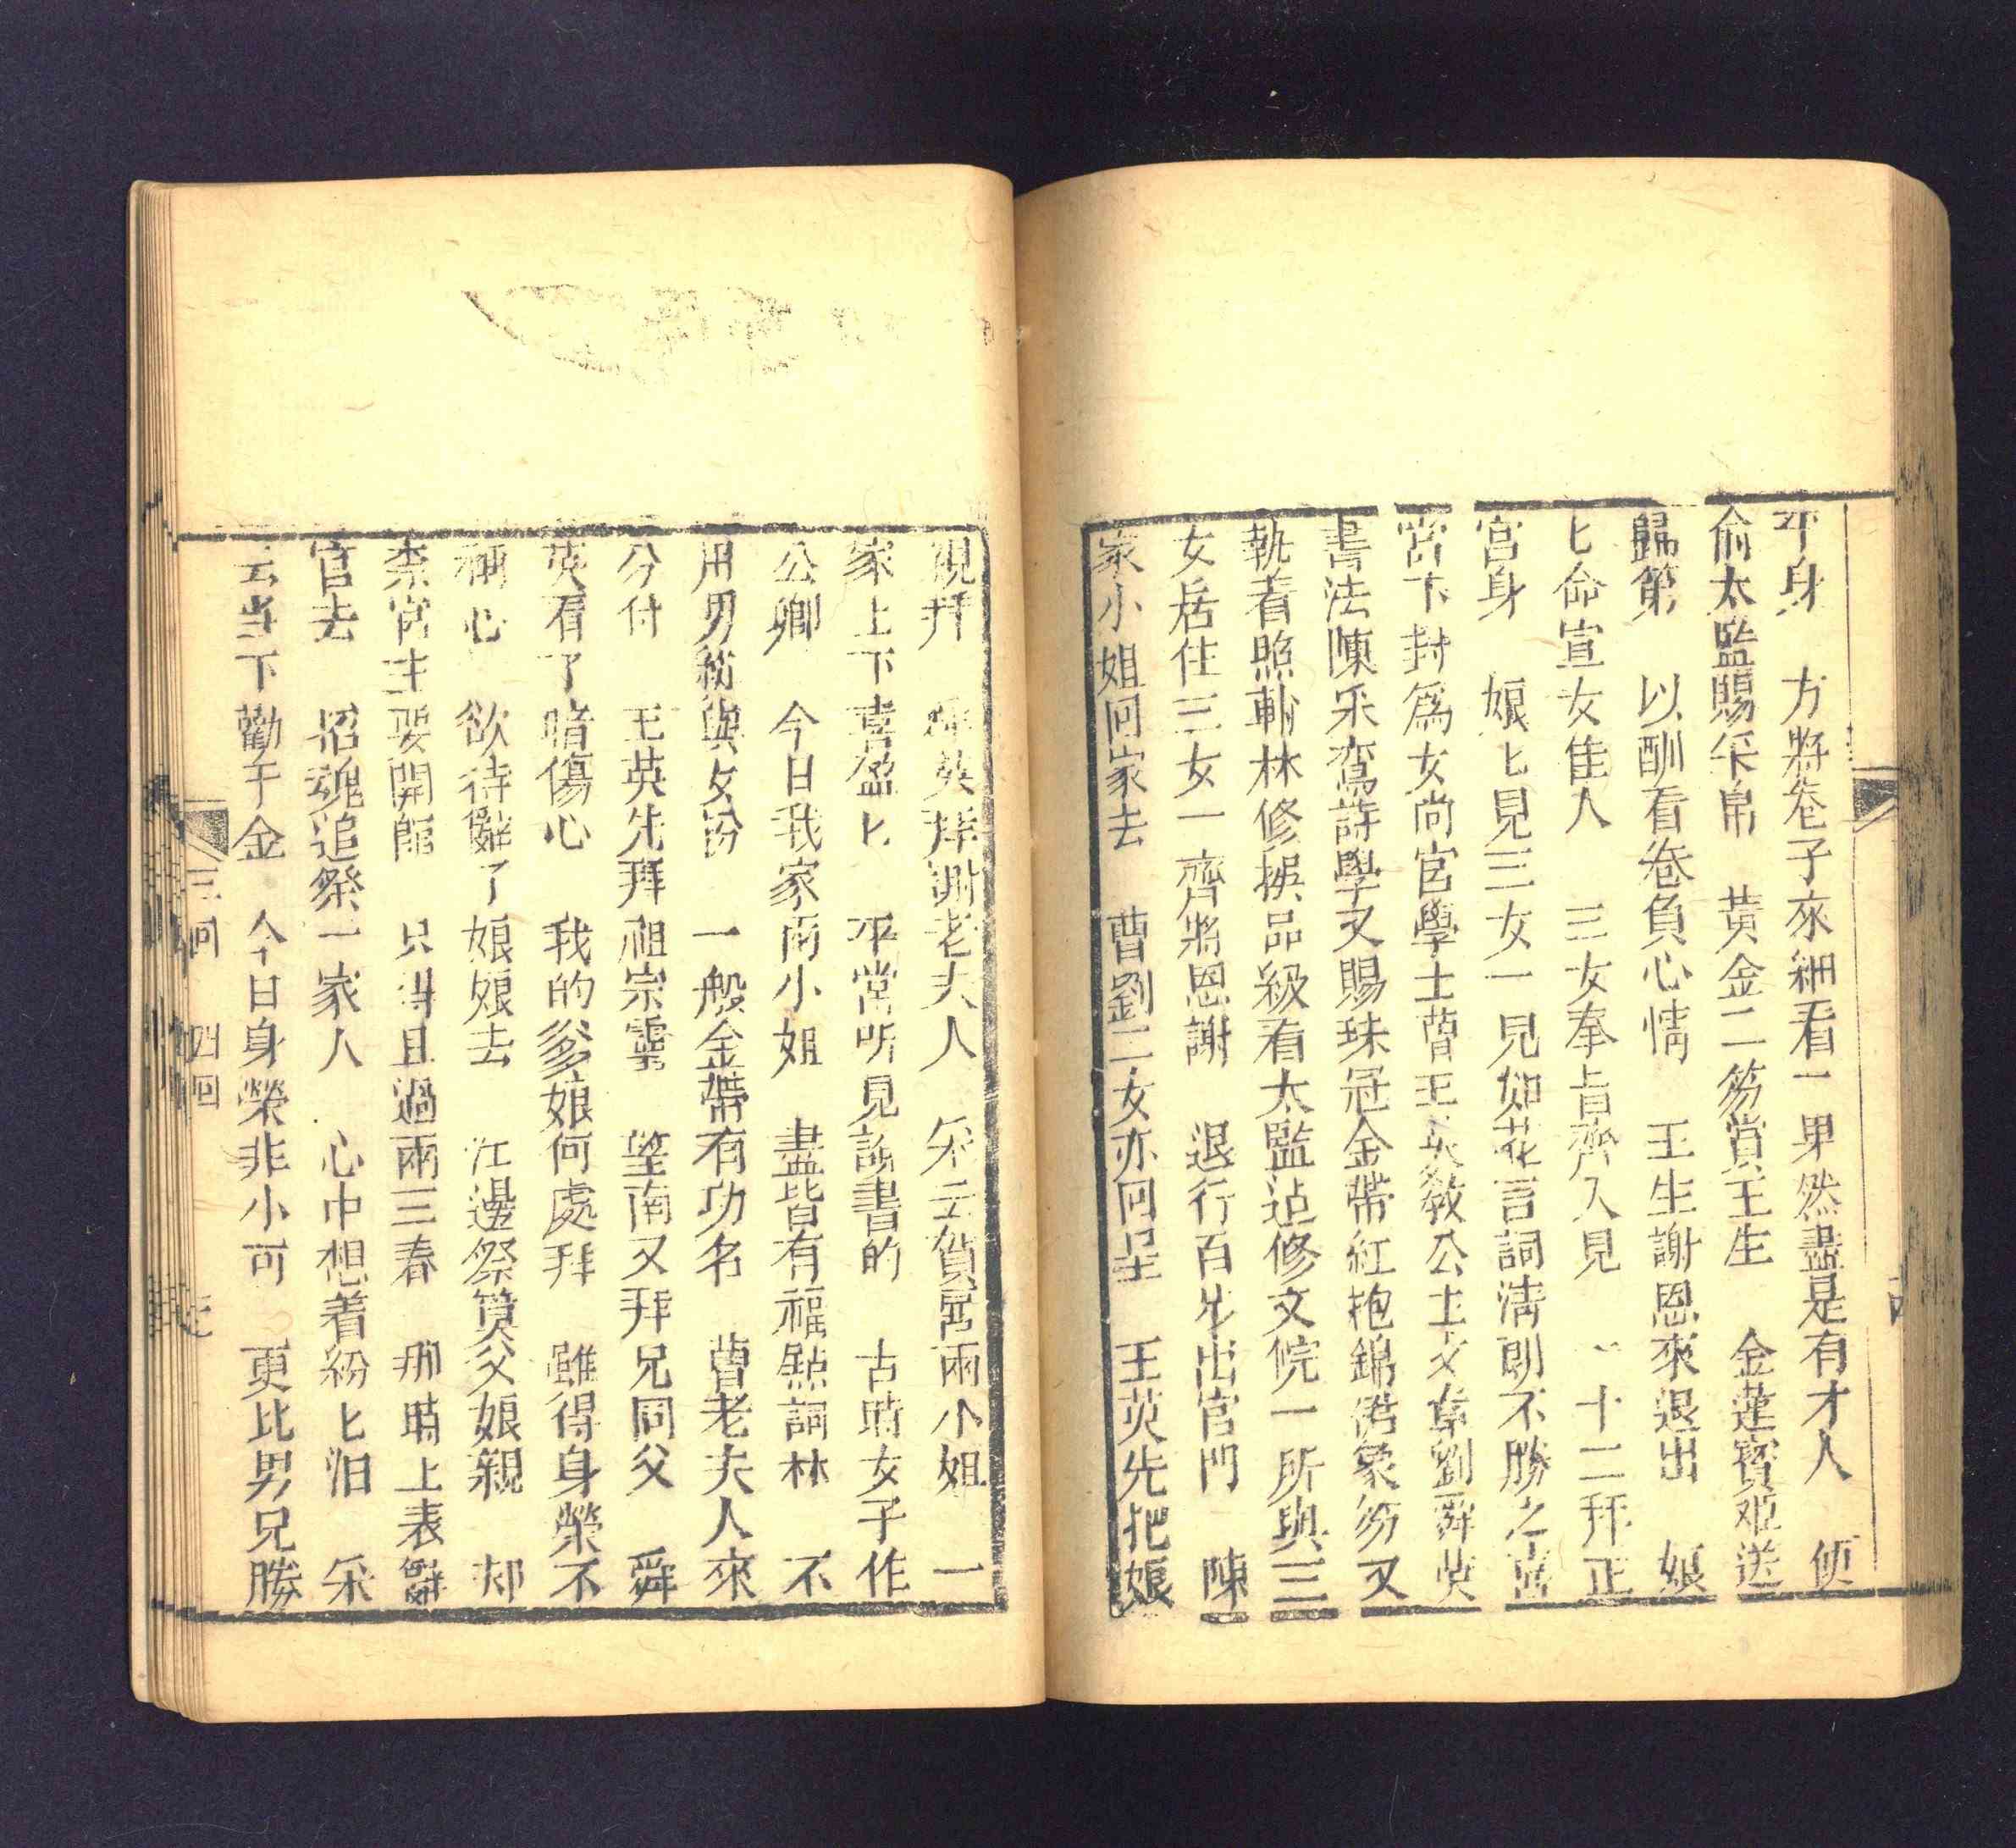 平身 方將卷子來細看一 果然盡是有才人 便
俞太監賜采帛 黄金二笏賞王生 金蓮寳姬送
歸第 以酬看卷負心情 王生謝恩來退出 娘
匕命宣女佳人 三女奉旨齊入見 十二拜正
宫身 娘匕見三女一見如花言詞淸朗不勝之喜
當下封爲女尚官學士曹王英敎公主文章劉舜英
書法陳采鸾詩學又賜珠冠金帶紅抱錦 象笏又
執着照翰林修撰品級看太監 修文院一所與三
女居住三女一齊將恩謝 退行百步出宫門 陳
家小姐回家去 曹劉二女亦回 王英先把娘
親拜 舜英拜謝老夫人 采云賀喜兩小姐 一
家上下喜盈匕 平常听見說書的 古時女子作
公卿 今日我家兩小姐 盡皆有福點詞林 不
用男 與女 一般金帶有功名 曹老夫人來
分付 王英先拜祖宗靈 望南又拜兄同父 舜
英看了暗傷心 我的爹娘何處拜 雖得身榮不
稱心 欲待辭了娘娘去 江邊祭奠父娘親 却
柰宫主要開館 只得且過兩三春 那時上表辭
官去 招魂追祭一家人 心中想着紛匕泪 采
云当下勸千金 今日身榮非小可 更比男兒勝
三回 四回